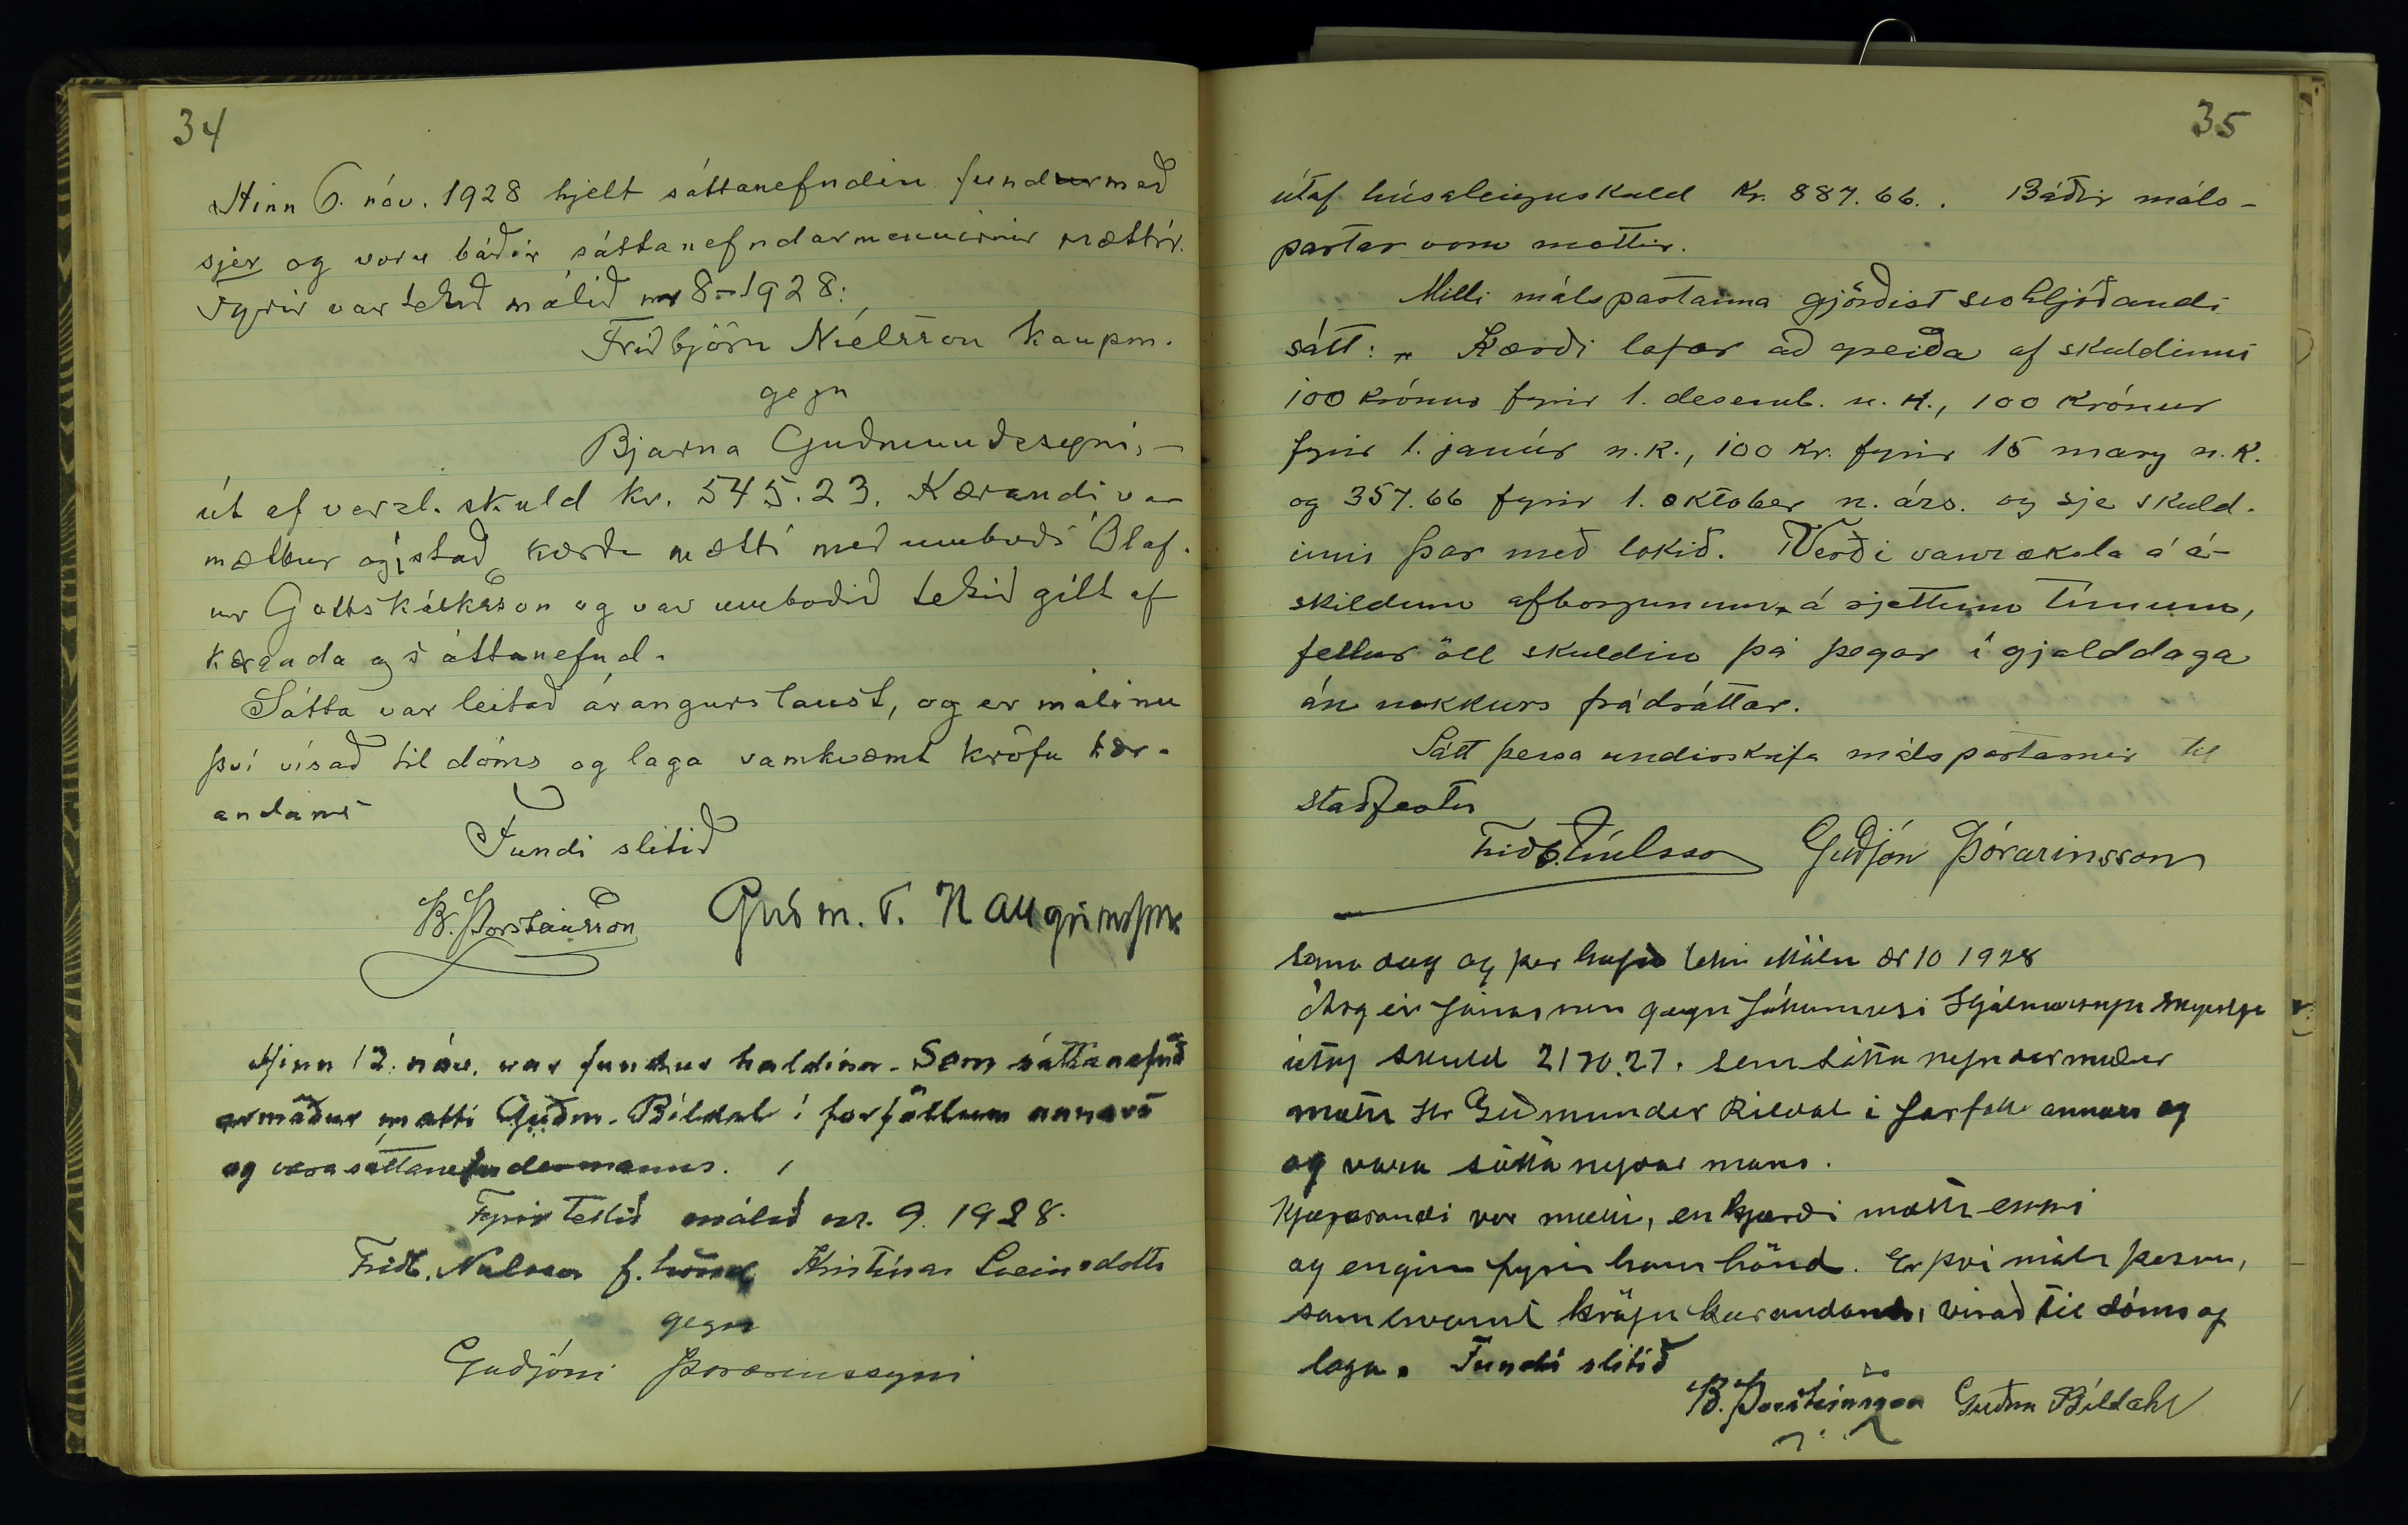 34
Hinn 6. nóv. 1928 hjelt sáttanefndin fund með
sjer og voru báðir sáttanefndarmennirnir mættir.
Fyrir var tekið málið nr 8 - 1928:
Friðbjörn Níelsson kaupm.
gegn
Bjarna Guðmundssyni, -
út af verzl. skuld kr. 545.23. Kærandi var
mættur og í stað kærða mætti með umboði Ólaf-
ur Gottskálksson og var umboðið tekið gilt af
kæranda og sáttanefnd.
Sátta var leitað árangurslaust, og er málinu
því vísað til dóms og laga samkvæmt kröfu kær-
andans
Fundi slitið
B. Þorsteinsson Guðm. T. Hallgrímsson
Hinn 12. nóv. var fundur haldinn. Sem sáttanefnd
armaður mætti Guðm. Bíldal í forföllum annars
og vara sáttanefndarmanns.
Fyrir tekið málið nr. 9. 1928.
Friðb. Níelsson f. hönd Kristínar Sveinsdottr
gegn
Guðjóni Þorarinssyni
35
útaf húsaleiguskuld Kr. 887.66. . Báðir máls-
partar voru mættir.
Milli málspartanna gjörðist svohljóðandi
sátt: „ Kærði lofar að greiða af skuldinni
100 krónur fyrir 1. desemb. n. k., 100 krónur
fyrir 1. janúr n.k., 100 kr. fyrir 15 marz n.k.
og 357.66 fyrir 1. október n. árs. og sje skuld-
inni þar með lokið. Verði vanræksla á á-
skildum afborgunum, á rjettum tímum,
fellur öll skuldin þá þegar í gjalddaga
án nokkurs frádráttar.
Sátt þessa undirskrifa málspartarnir til
staðfestu
Friðb. Níelsson Guðjón Þórarinsson
Sama dag og þar tekin Málin nr 10 1928
Ásgeir Jónasson gegn Jóhannesi Hjálmarssyni
útaf skuld 2170.27. Sem sátta nefndarmaður
mætti Hr Guðmundur Bildal i forföllum annars og
og vara sátta nefndar manns.
Kjærandi var mættur, en kjærði mætti ekki
og enginn fyrir hans hönd. Er því máli þessu,
samkvæmt kröfu kærandans, vísað til dóms og
laga. Fundi slitið
B. Þorsteinsson Guðm Bíldahl